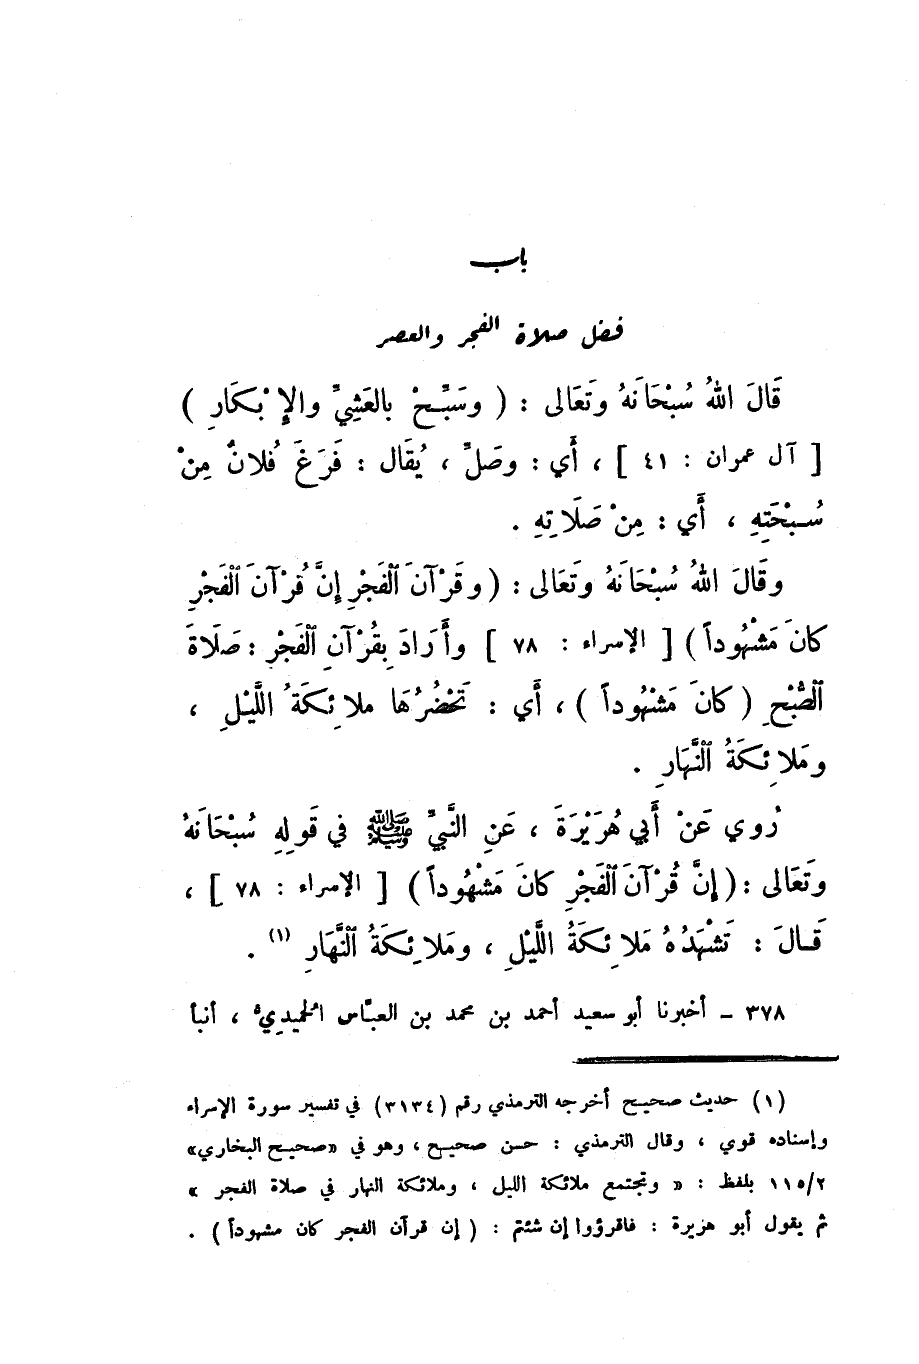 باب
فضل صلاة الفجر والعصر
قَالَ اللهُ سُبْحَانَهُ وتَعَالى : ( وسَبِّحْ بالعَشِيِّ والإِبْكَارِ )
[ آل عمران : ٤١ ] ، أَي : وصَلِّ ، يُقَال : فَرَغَ فُلانٌ مِنْ
سُبْحَتِهِ ، أَي : مِنْ صَلَاتِهِ .
وقَالَ اللهُ سُبْحَانَهُ وتَعَالى : ( وقَرْآنَ ٱلْفَجْرِ إِنَّ قُرْآنَ ٱلْفَجْرِ
كانَ مَشْهُوداً ) [ الإسراء : ٧٨ ] وأَرَادَ بِقُرْآنِ ٱلْفَجْرِ : صَلَاةَ
ٱلْصُّبْحِ ( كانَ مَشْهُوداً ) ، أَي : تَحْضُرُهَا ملائِكَةُ اللَّيْلِ ،
ومَلائِكَةُ ٱلنَّهَارِ .
رُوي عَنْ أَبي هُرَيْرَةَ ، عَنِ النَّبيِّ ﷺ في قَولِهِ سُبْحَانَهُ
وتَعَالى : ( إِنَّ قُرْآنَ ٱلْفَجْرِ كانَ مَشْهُوداً ) [ الإسراء : ٧٨ ] ،
قَـالَ : تَشْهَدُهُ مَلائِكَةُ اللَّيْلِ ، ومَلائِكَةُ ٱلنَّهَارِ (١) .
٣٧٨ - أخبرنا أبو سعيد أحمد بن محمد بن العبّاس الحميديُّ ، أنبأ
(١) حديث صحيح أخرجه الترمذي رقم (٣١٣٤) في تفسير سورة الإسراء
وإسناده قوي ، وقال الترمذي : حسن صحيح ، وهو في «صحيح البخاري»
١١٥/٢ بلفظ : « وتجتمع ملائكة الليل ، وملائكة النهار في صلاة الفجر »
ثم يقول أبو هريرة : فاقرؤوا إن شئتم : ( إن قرآن الفجر كان مشهوداً ) .